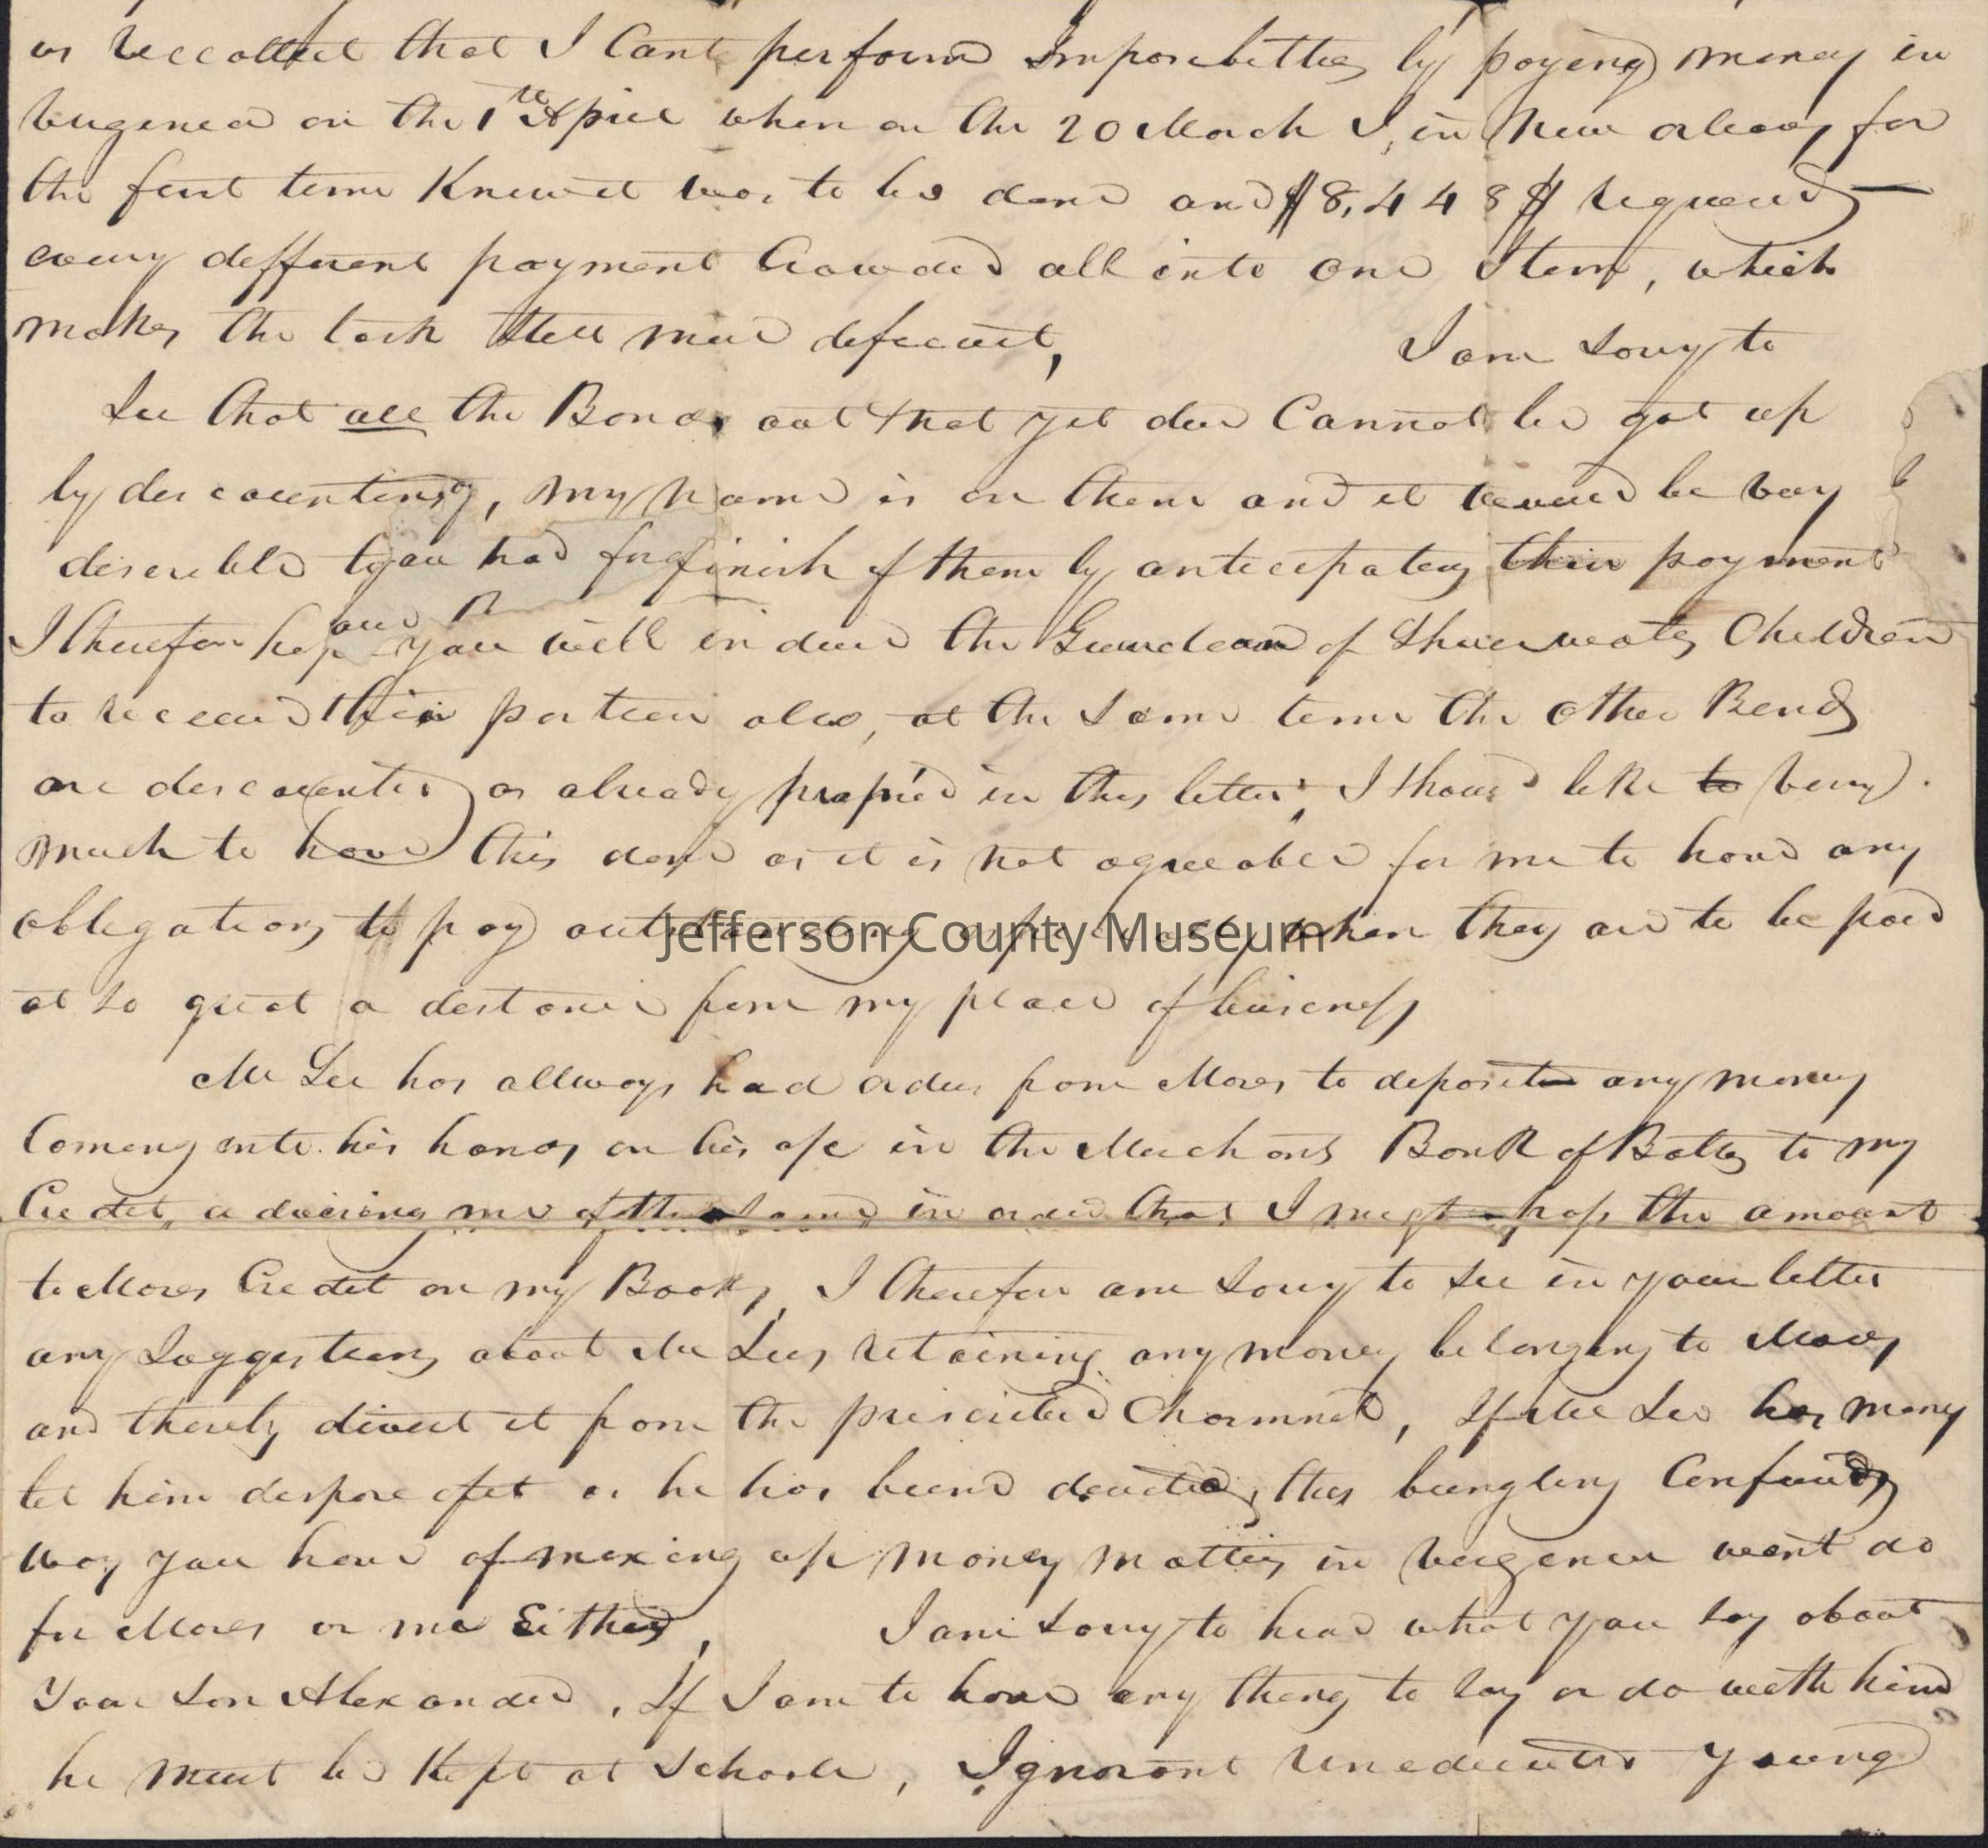 us reccollect that I Cant perform Imposibilities by paying money in
virginea on the 1st April when on the 20 March I, in New orleans for
the first time Knew it was to be done and $8,448$ required
every different payment Crowded all into one Item, which
makes the task still more difficult, I am sorry to
See that all the Bonds out & not yet due Cannot be got up
by discounting, my name is on them and it would be very
desireable you had finish of them by anticipating their payment
I therefore hope you will induce the Guardean of Children
to receive their portion also, at the same time the other Bonds
are discounted as already in this letter, I should like to very
much to have this done as it is not agreeable for me to have any
obligations to pay outstanding especially when they are to be paid
at so great a distance from my place of buiseness
Mr Lee has allways had orders from Moses to deposite any money
Coming into his hands on his a/c in the Merchants Bank of Balto to my
Credit, adviseing me of the same in order that I might pass the amount
to Moses Credit on my Books, I therefore am sorry to see in your letter
any Suggestions about Mr Lees retaining any money belonging to Moses
and thereby divert it from the prescribed Channel, If Mr Lee has money
let him dispose of it as he has been directed, this bungling Confused
way you have of mixing up money matters in virginea wont do
for Moses or me Either, I am sorry to hear what you say about
Your son Alexander, If I am to have any thing to say or do with him
he must be Kept at Schoole, Ignorant Uneducated Young
Jefferson County Museum